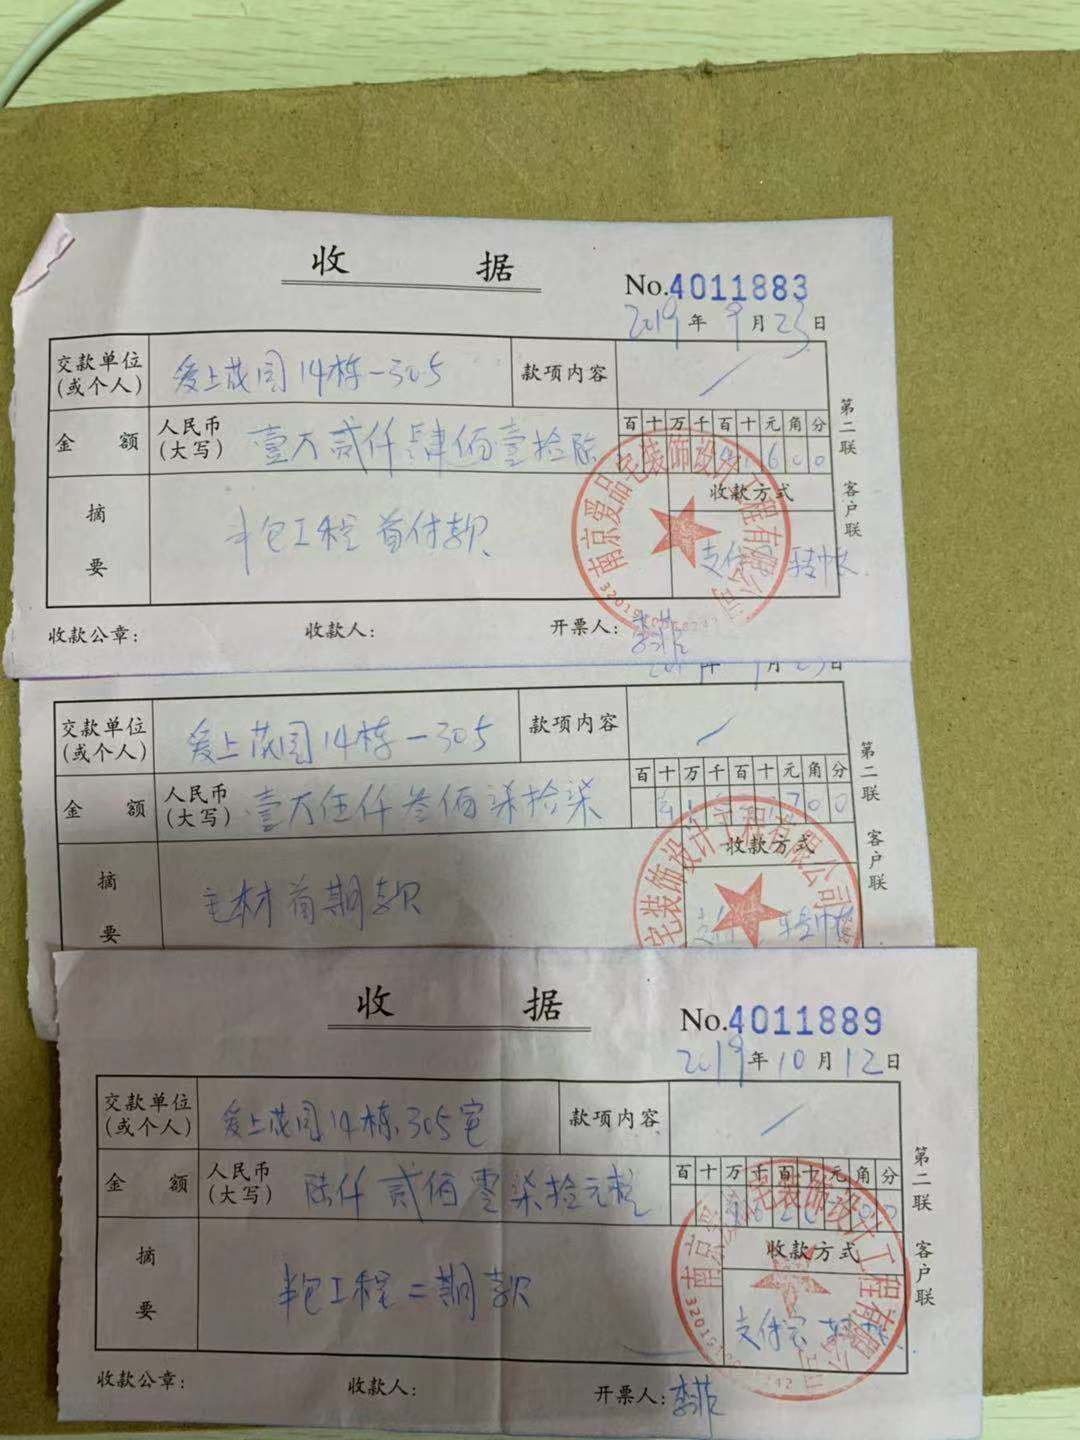 收 据
No.4011883
2019年9月23日
交款单位(或个人) 爱上茂园14栋-305 款项内容 /
金额 人民币(大写) 壹万贰仟肆佰壹拾陆 百十万千百十元角分
收款方式
摘要 半包工程首付款
支付宝 转帐
收款公章: 收款人: 开票人:
第二联 客户联
南京爱品宅装饰设计工程有限公司
交款单位(或个人) 爱上茂园14栋-305 款项内容 /
金额 人民币(大写) 壹万伍仟叁佰柒拾柒 百十万千百十元角分
收款方式
摘要 主材首期款
第二联 客户联
宅装饰设计工程有限公司
收 据
No.4011889
2019年10月12日
交款单位(或个人) 爱上茂园14栋.305室 款项内容 /
金额 人民币(大写) 陆仟贰佰零柒拾元整 百十万千百十元角分
收款方式
摘要 半包工程二期款
支付宝
收款公章: 收款人: 开票人:
第二联 客户联